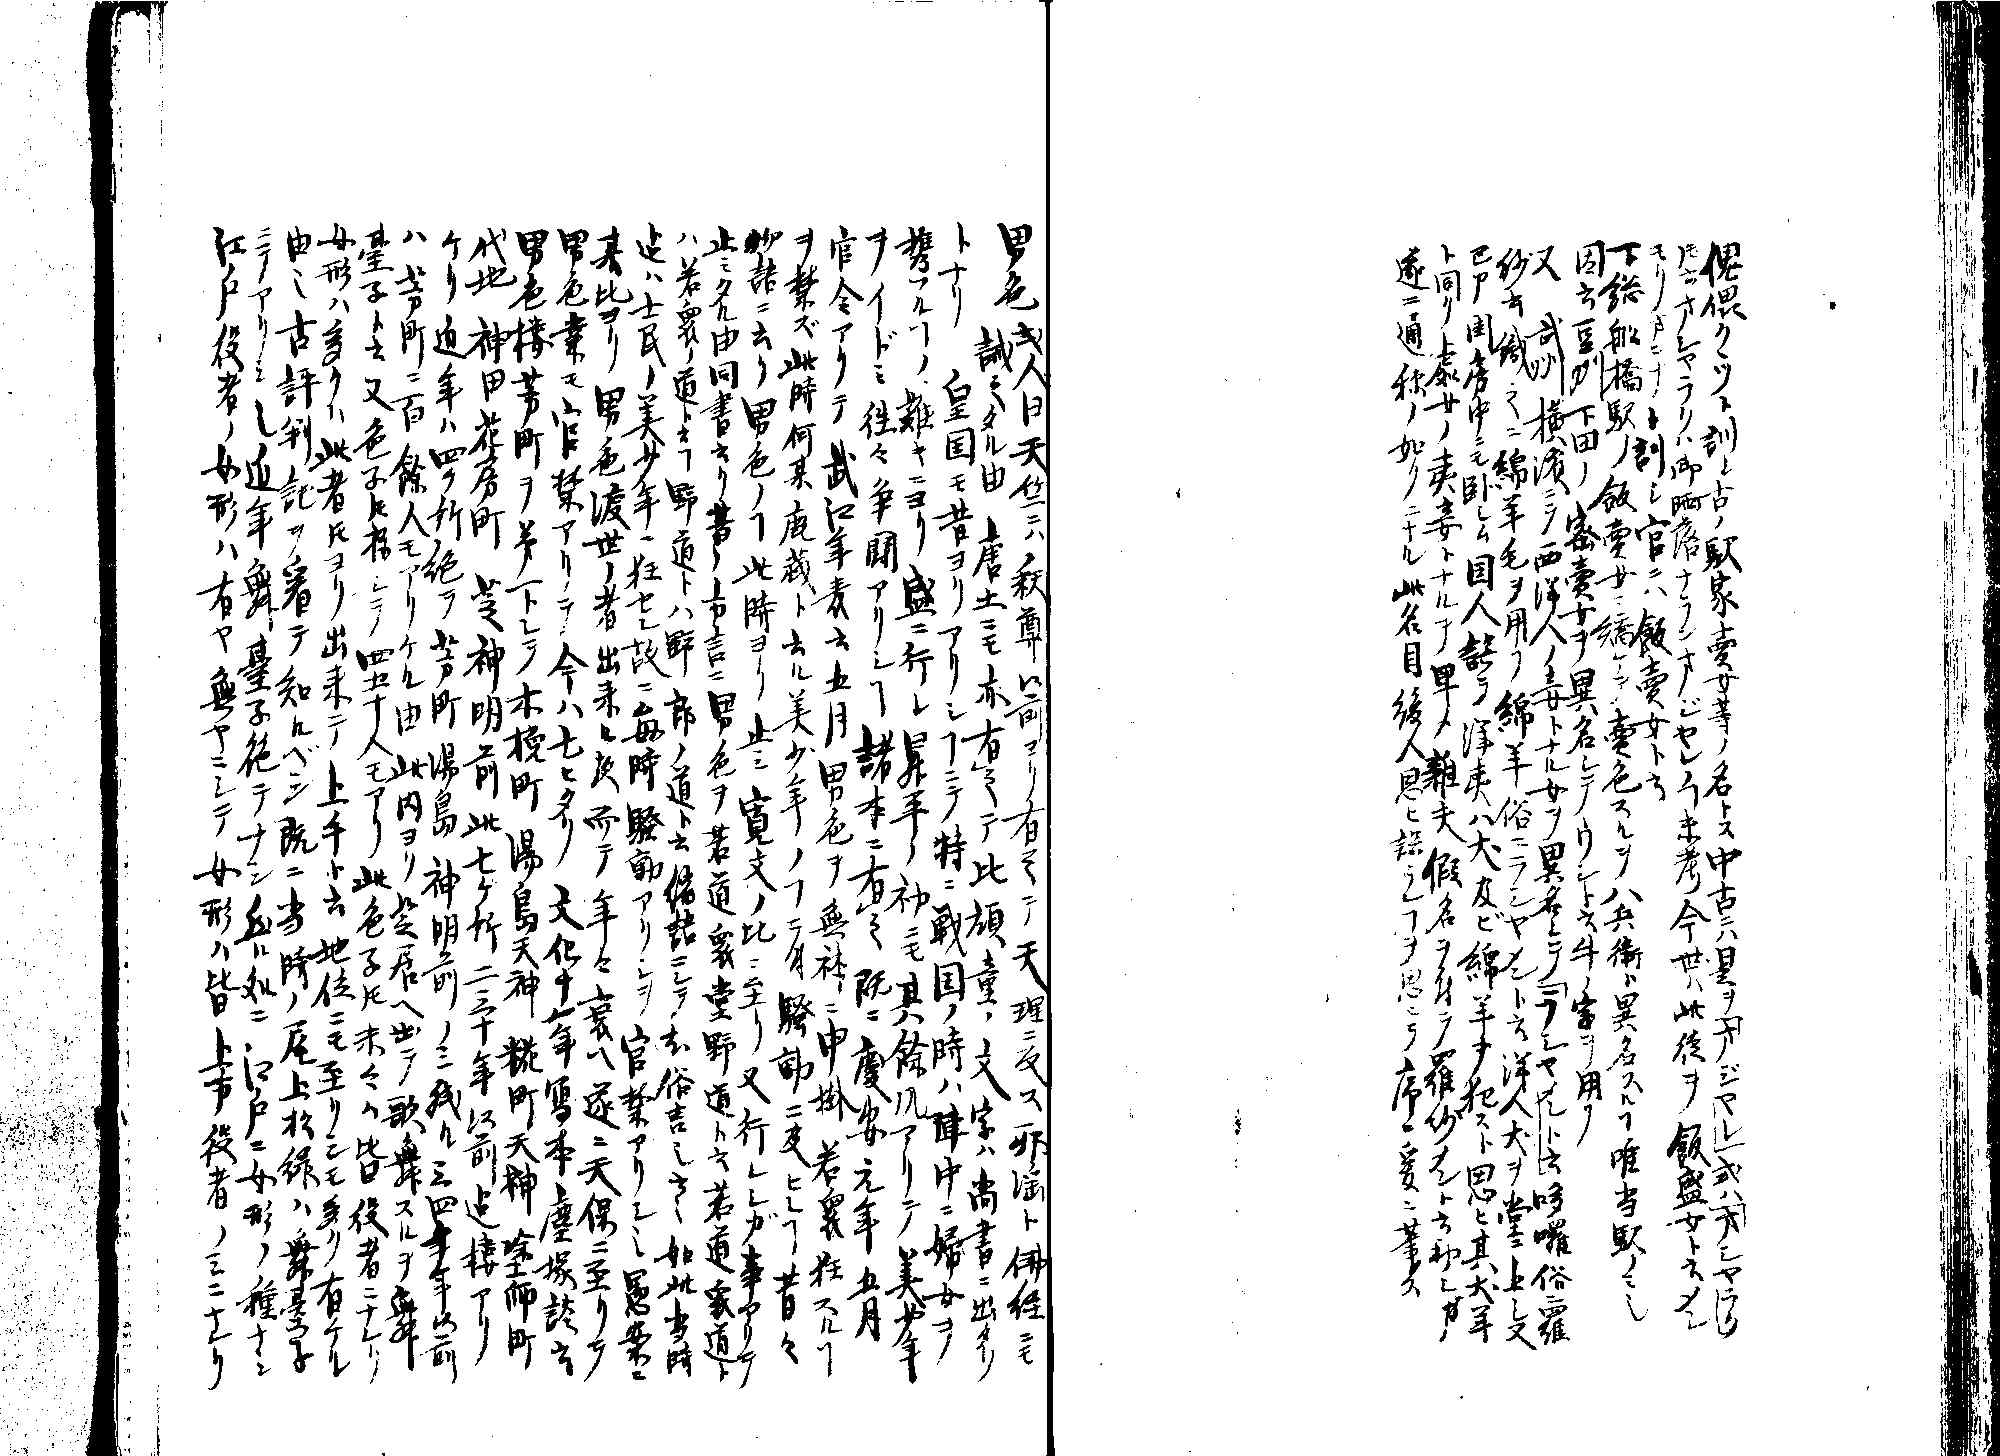 傀儡クヾツト訓ム古ノ駅家売女等ノ名トス中古ハ是ヲ「オジヤレ」或ハ「オシヤラク」
トモ云オシヤラクハ御洒落ナランオジヤレノ名未考今世ハ此徒ヲ飯盛女ト云メシ
モリオンナト訓シ官ニハ飯売女ト云
下総船橋駅ノ飯売女ニ矯ケシ売色スルヲ八兵衛ト異名スル┐唯当駅ノミ
因云豆州下田ノ密売女ヲ異名シテウシト云牛ノ字ヲ用フ
又武州横濱ニテ西洋人ノ妾トナル女ヲ異名シテ「ラシヤメン」ト云哆囉俗ニ羅
紗ト云織之ニ綿羊毛ヲ用フ綿羊俗ニラシヤメント云洋人犬ヲ堂ニ上シ又
已ア閨房中ニモ臥シム国人誤ラ洋夷ハ犬及ビ綿羊ヲ犯スト思ヒ其犬羊
ト同ク上衆女ノ夷妾トナルヲ卑メ難夫假名ヲ付テ羅紗メント云初シガ
遂ニ通称ノ如クニナル此名目後人思ヒ誤ラン┐ヲ思ヒテ序ニ爰ニ筆ス
男色 或人曰天竺ニハ釈尊以前ヨリ有之テ天理ニ反ス邪淫ト佛経ニモ
誡ミタル由唐土ニモ亦有之テ比頑童ノ文字ハ尚書ニ出タリ
トナリ 皇国モ昔ヨリアリシ┐ニテ特ニ戦国ノ時ハ陣中ニ婦女ヲ
携フル┐ノ難キニヨリ盛ニ行レ昇平ノ初ニモ其餘風アリテ美少年
ヲイドミ往々争闘アリシ┐諸本ニ有之既ニ慶安元年五月
官令アリテ武江年表云五月男色ヲ無躰ニ申掛若衆狂スル┐
ヲ禁ズ此時何某鹿蔵ト云ル美少年ノ┐ニ付騒動ニ及ヒシ┐昔々
物語ニ云リ男色ノ┐此時ヨリ止ミ寛文ノ比ニ至リ又行レシガ事アリテ
止ミタル由同書云リ昔ノ方言ニ男色ヲ若道衆堂野道ト云若道衆道ト
ハ若衆ノ道ト云┐野道トハ野郎ノ道ト云偖詰ニシテ古俗言シナシ如此当時
迠ハ士民ノ美少年ニ狂セシ故ニ毎時騒動アリシヲ官禁アリシニ因禁ニ
其比ヨリ男色渡世ノ者出来ヒ及而テ年々衰ヘ遂ニ天保ニ至リテ
男色業モ官禁アリテ今ハ亡ヒタリ文化十一年寫本塵塚談云
男色楼芳町ヲ第一トシテ木挽町湯島天神糀町天神塗師町
代地神田花房町芝神明前此七ケ所二三十年以前迠楼アリ
ケリ近年ハ四ケ所絶テ芳町湯島神明前ノミ残ル三四十年以前
ハ芳町ニ百餘人モアリケル由此内ヨリ芝居ヘ出テ歌舞スルヲ舞
臺子ト云又色子ト称シテ四五十人モアリ此色子ハ未々ハ皆役者ニナレリ
女形ハ多クハ此者トヨリ出来テ上手ト云地位ニモ至リシモ多ク有ケル
由ミ古評判記ヲ看テ知ルベシ既ニ当時ノ尾上松緑ハ舞臺子
ニテアリシ也近年舞臺子絶テナシ然ル処ニ江戸ニ女形ノ種ナシ
江戸役者ノ女形ハ有ヤ無ヤニシテ女形ハ皆上方役者ノミニナレリ